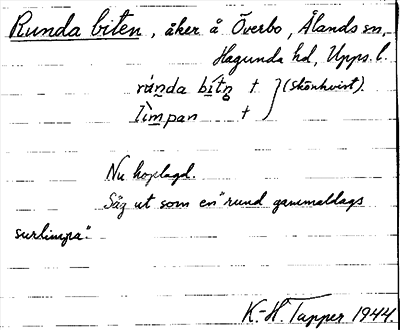 Runda biten, åker å Överbo, Ålands sn,
Hagunda hd, Upps. l.
rúnda bìtn̥ † } (Skönkvist).
lìmpan †
Nu hoplagd.
Såg ut som en "rund gammaldags
surlimpa".
K.-H. Tapper 1944.